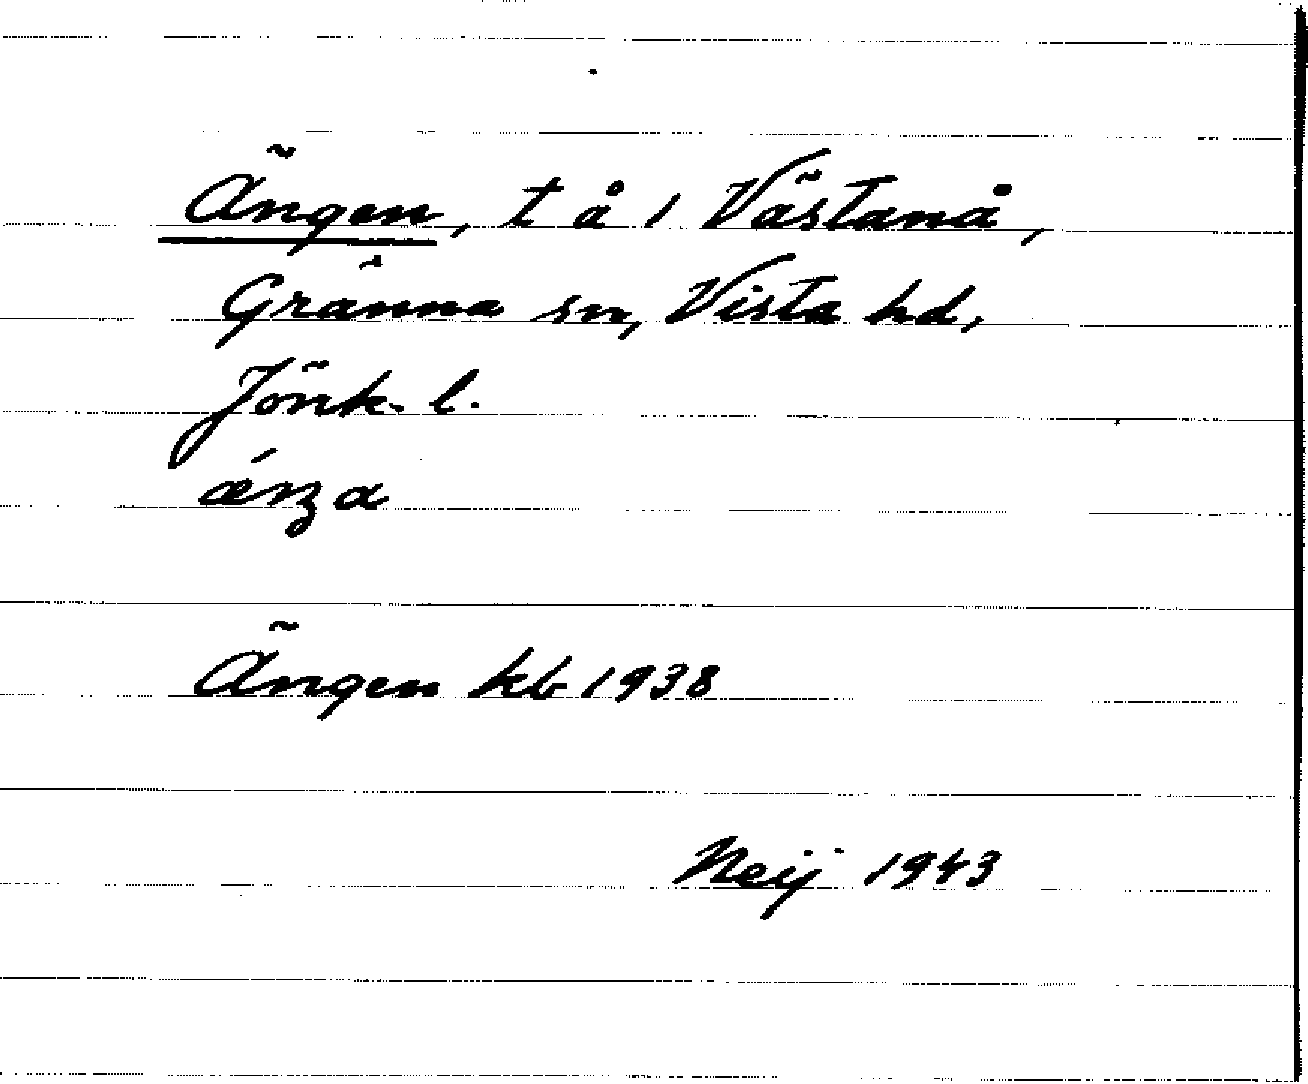 Ängen, t å 1 Västanå,
Gränna sn, Vista hd,
Jönk. l.
ǽnʒa
Ängen kb 1938
Neij 1943